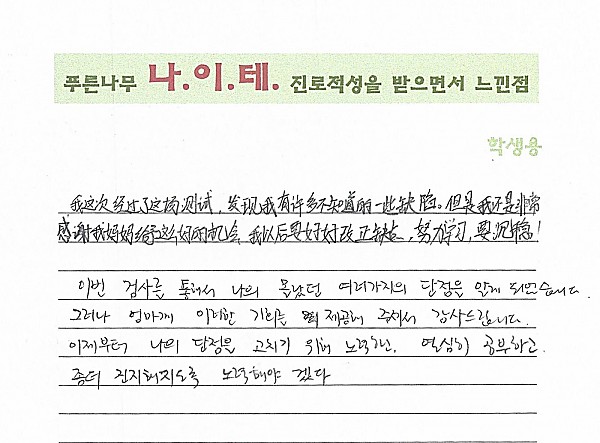 푸른나무 나.이.테. 진로적성을 받으면서 느낀점
학생용
我这次经过了这场测试，发现我有许多不知道的一些缺陷。但是我还是非常
感谢我妈妈给予这么好的机会，我以后要好好改正缺点，努力学习，要沉稳！
이번 검사를 통해서 나의 몰랐던 여러가지의 단점을 알게 되었습니다.
그러나 엄마께 이러한 기회를 제공해 주셔서 감사드립니다.
이제부터 나의 단점을 고치기 위해 노력하고, 열심히 공부하고.
좀더 진지해지도록 노력해야 겠다